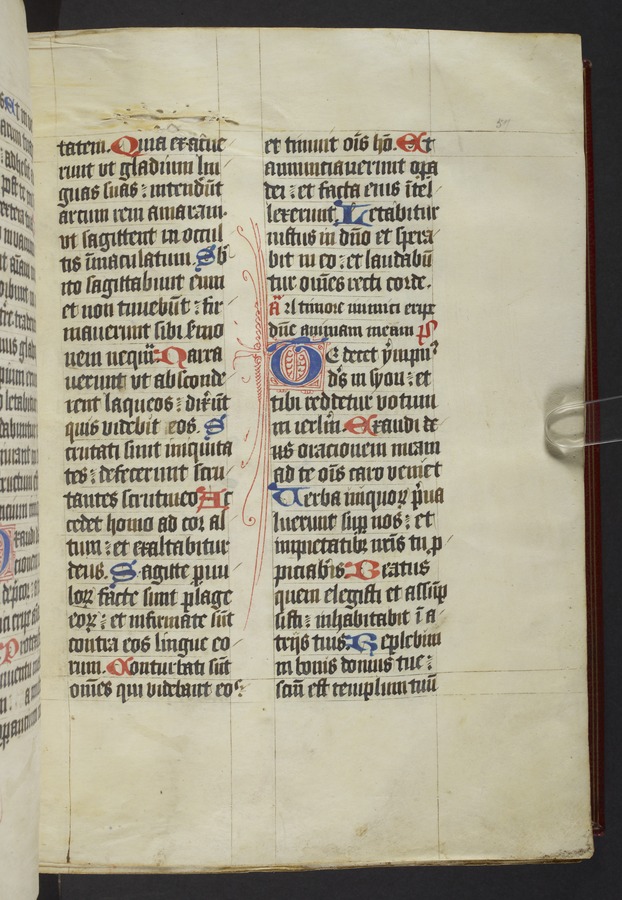 57
tatem. Quia exacue
runt vt gladium lin
guas suas : intendūt
arcum rem amaram.
vt sagittent in occul
tis īmaculatum. Sb̄
ito sagittabunt eum
et non timebūt : fir
mauerunt sibi s̄mo
nem nequā: Narra
uerunt vt absconde
rent laqueos : dixūt
quis videbit eos. S
crutati sunt iniquita
tes : defecerunt scru
tantes scrutinio Ac
cedet homo ad cor al
tum : et exaltabitur
deus. Sagitte puu
loꝝ facte sunt plage
eoꝝ : et infirmate sūt
contra eos lingue eo
rum. Conturbati sūt
om̄es qui videbant eos:
et timuit oīs hō. Et
annunciauerunt opa
dei : et facta eius ītel
lexerunt. Letabitur
iustus in dn̄o et spera
bit in eo : et laudabū
tur om̄es recti corde.
A timore inimici eripe
dn̄e animam meam ps
TE decet ymnus
ds̄ in syon : et
tibi reddetur votum
in ierl̄m. Exaudi de
us oracionem meam
ad te oīs caro veniet
Uerba iniquoꝝ p̄ua
luerunt sup nos : et
impietatibꝫ nr̄is tu p
piciabis. Beatus
quem elegisti et assūp
sisti : inhabitabit ī a
trijs tuis. Replebim
in bonis domus tue :
scm̄ est templum tuū